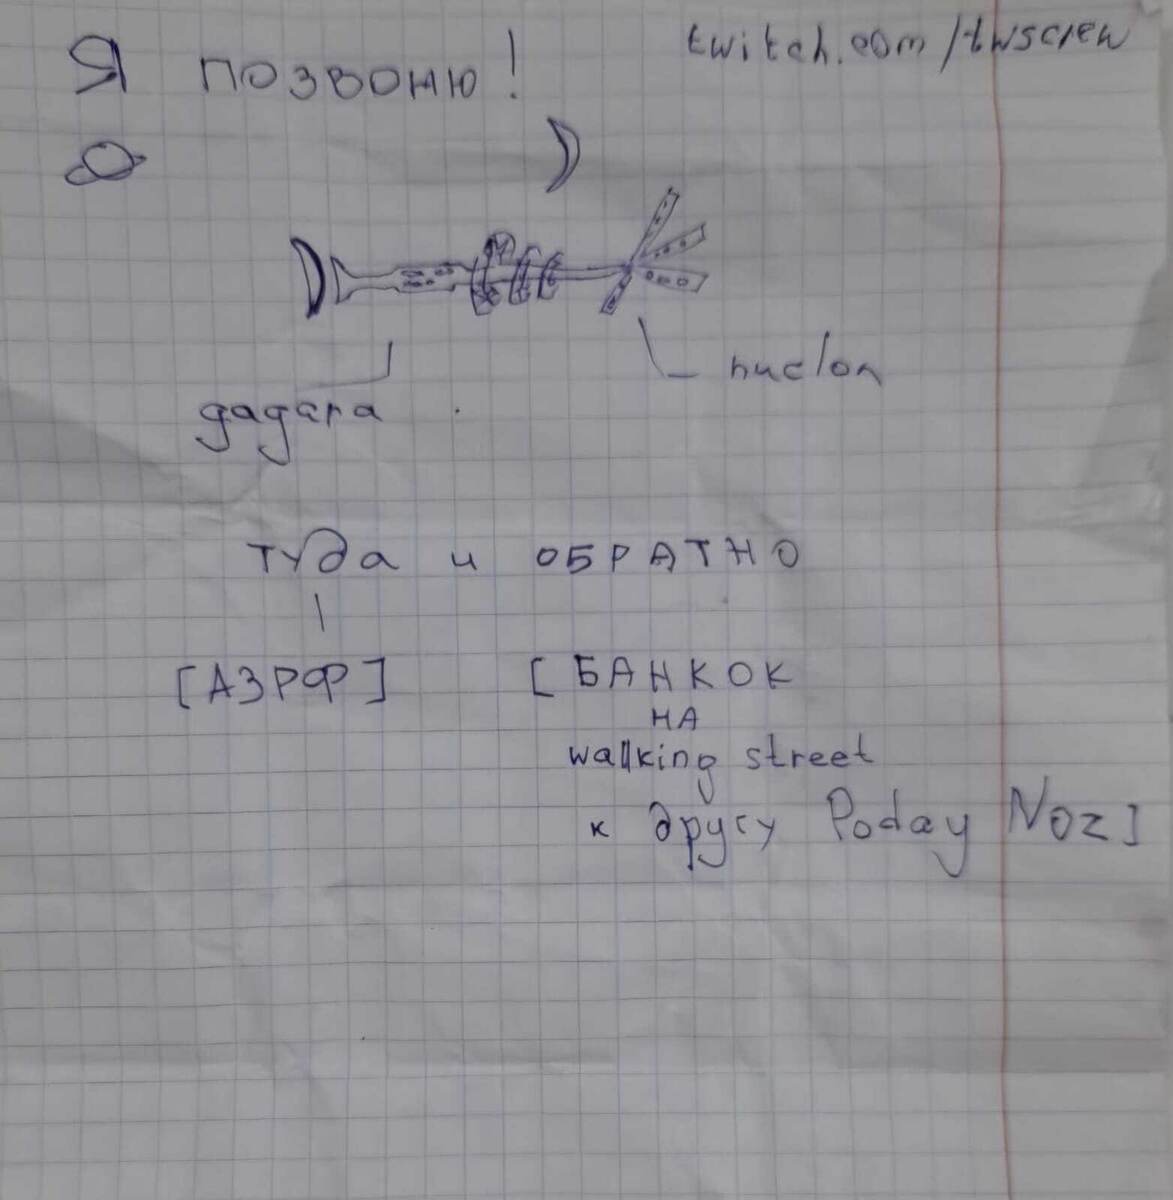 Я ПОЗВОНЮ!
twitch.com/twscrew
gagara
nuclon
Туда и ОБРАТНО
[АЗРФ]
[БАНКОК
НА
walking street
к другу Poday Noz]